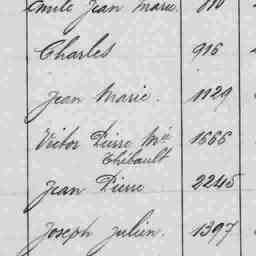 Emile Jean Marie. 810
Charles 916
Jean Marie. 1129
Victor Pierre Mie 1666
Thébault
Jean Pierre 2245
Joseph Julien. 1397